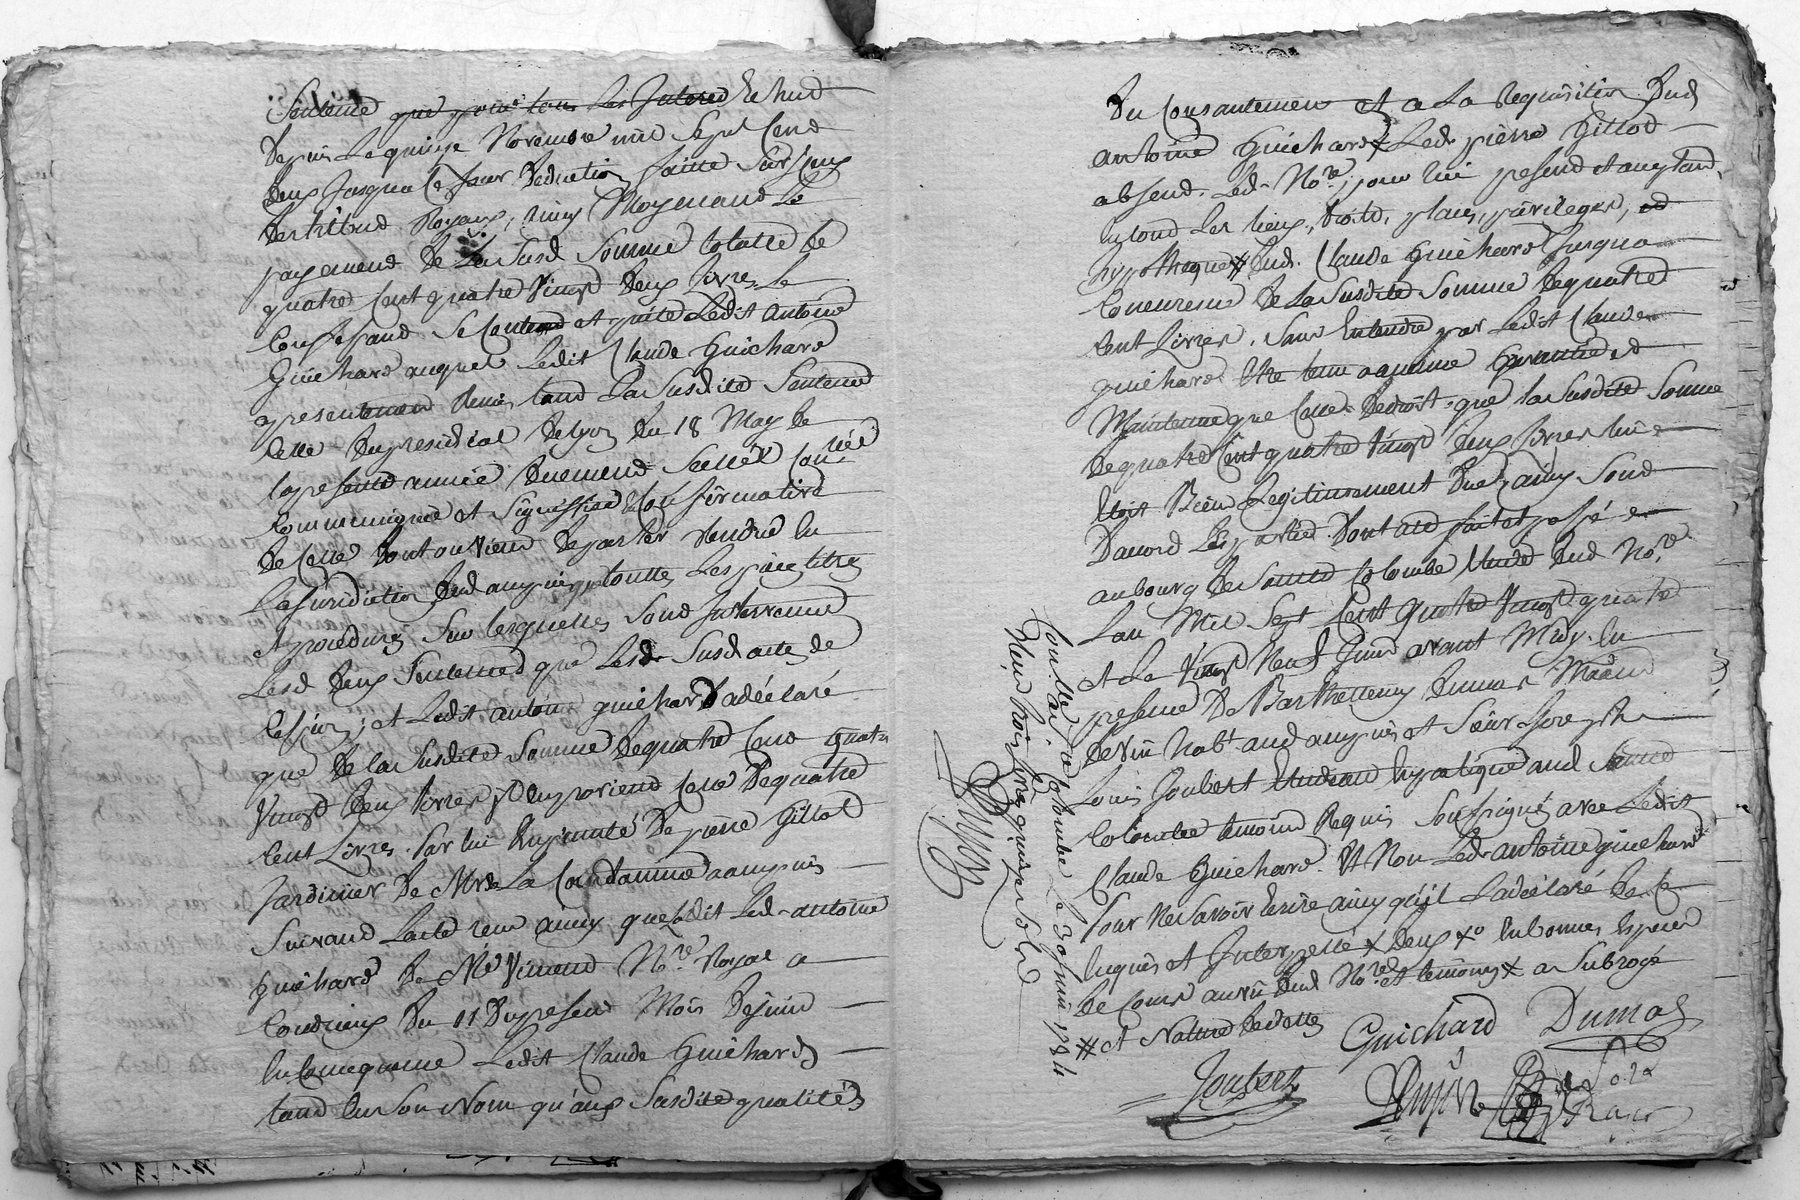 Sentence que pour tous les Interest Echud
Depuis Le quinze Novembre mil Sept Cend
deux Jusqua Ce Jour Deduction faitte Sur Iceux
Des Royaux, Moyenand Le
payement De La Susd Somme totalle de
quatre Cent quatre Vingt Deux Livres Le
Confessand Se Contend et quite Ledit Antoine
Guichard auquel Ledit Claude Guichard
apresentement Remis tand La Susdite Sentence
Celle Du presidial De Lyon Du 18 May de
la presente année Duemend Scellée Conlée
Communiquée et Signiffiée Confirmative
De Celle Dont on Vient De parler Rendue En
La Juridiction Dud ampuis que touttes Les pieces titres
et procedures Sur lesquelles Sond Intervenue
Lesd Deux Sentences que Lesd Susd actes de
; et Ledit antoine guichard a déclaré
que De la Susdite Somme De quatre Cend quatre
Vingt Deux Livres Il En provient Celle De quatre
Cent Livres par lui Emprunté De pierre Gillot
Jardinier De Mr De La Condamine a ampuis
Suivand Lacte recu ainsy que Dit Led antoine
Guichard De Me Vincend Nore Royal a
Condrieux Du 11 Du present Mois De juin
En Consequence Ledit Claude Guichard
tand En Son Nom qu'aux Susdite qualités
Du Consantement et a La Requisition Dud
antoine Guichard x Led pierre Gillot
absend Led Nore, pour lui presend et acceptand,
En toud Les lieux, Droitd, place, privileges, ed
hypotheque # Dud. Claude Guichard Jusqua
Concurence De La Susdite Somme De quatre
Cent Livres, Sans Entendre par Ledit Claude
guichard Etre tenu a aucune Garantie, d
Maintenue que Celle De droit, que la Susdite Somme
De quatre Cent quatre Vingt Deux Livres lui
Etoit Bien Legitimement Due, ainsy Sond
D'accord Les partie. Dont acte fait et passé
au bourg De Sainte Colombe Etude Dud Nore
L'an Mil Sept Cent Quatre Vingt quatre
et Le Vingt Neuf Juin avant Midy. En
presence De Barthelemy Dumas Md
De Vin Habt aud ampuis et Sieur
Louis Joubert Etudiand En pratique aud Sainte
Colombe temoins Requis Soussignés avec Ledit
Claude Guichard. Et Non Led antoine guichard
Pour Ne Savoir Ecrire ainsy qu'il L'a déclaré De Ce
Enquis et Interpellé x Deux xo En bonnes Especes
De Cours au vu Dud Nore et temoins x a Subrogé
# et Nature De dette
Guichard Dumas
Joubert
Contllé a Ste Colombe Le 30 Juin 1784
Reçu trois Livres quinze Sols